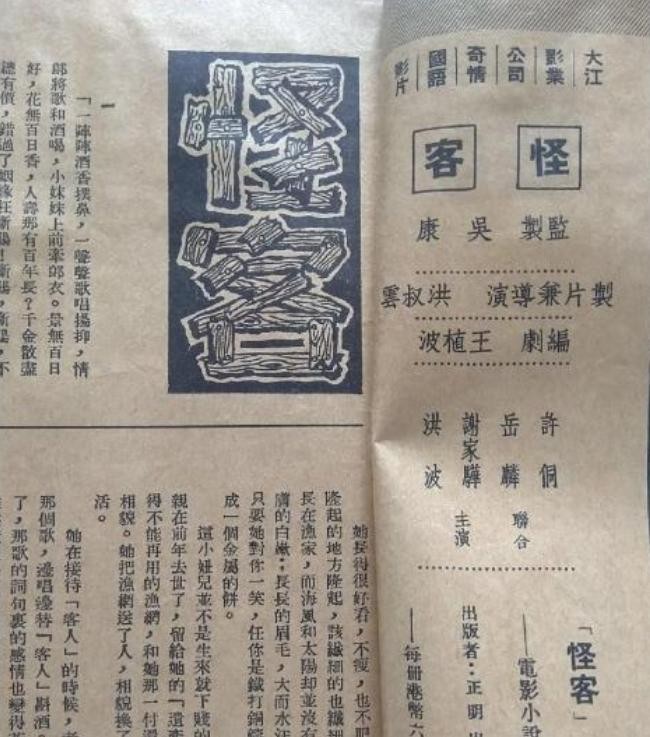 大江
影業
公司
奇情
國語
影片
怪客
監製 吳康
製片兼導演 洪叔雲
編劇 王植波
許侗
岳麟
謝家驊
洪波
聯合
主演
「怪客」
——電影小說
出版者：正明出
——每冊港幣六
怪客
一
「一陣陣酒香撲鼻，一聲聲歌唱揚抑，情
郎將歌和酒喝，小妹妹上前牽郎衣。景無百日
好，花無百日香，人壽那有百年長？千金散盡
總有價，錯過了姻緣枉斷腸！斷腸，斷腸，不
她長得很好看，不瘦，也不肥
隆起的地方隆起，該纖細的也纖細
長在漁家，而海風和太陽却並沒有
膚的白嫩；長長的眉毛，大而水汪
只要她對你一笑，任你是鐵打銅
成一個金屬的餅。
這小妞兒並不是生來就下賤的
親在前年去世了，留給她的「遺產
得不能再用的漁網，和她那一付
相貌。她把漁網送了人，相貌換了
活。
她在接待「客人」的時候，
那個歌，邊唱邊替「客人」斟酒。
了，那歌的詞句裏的感情也變得